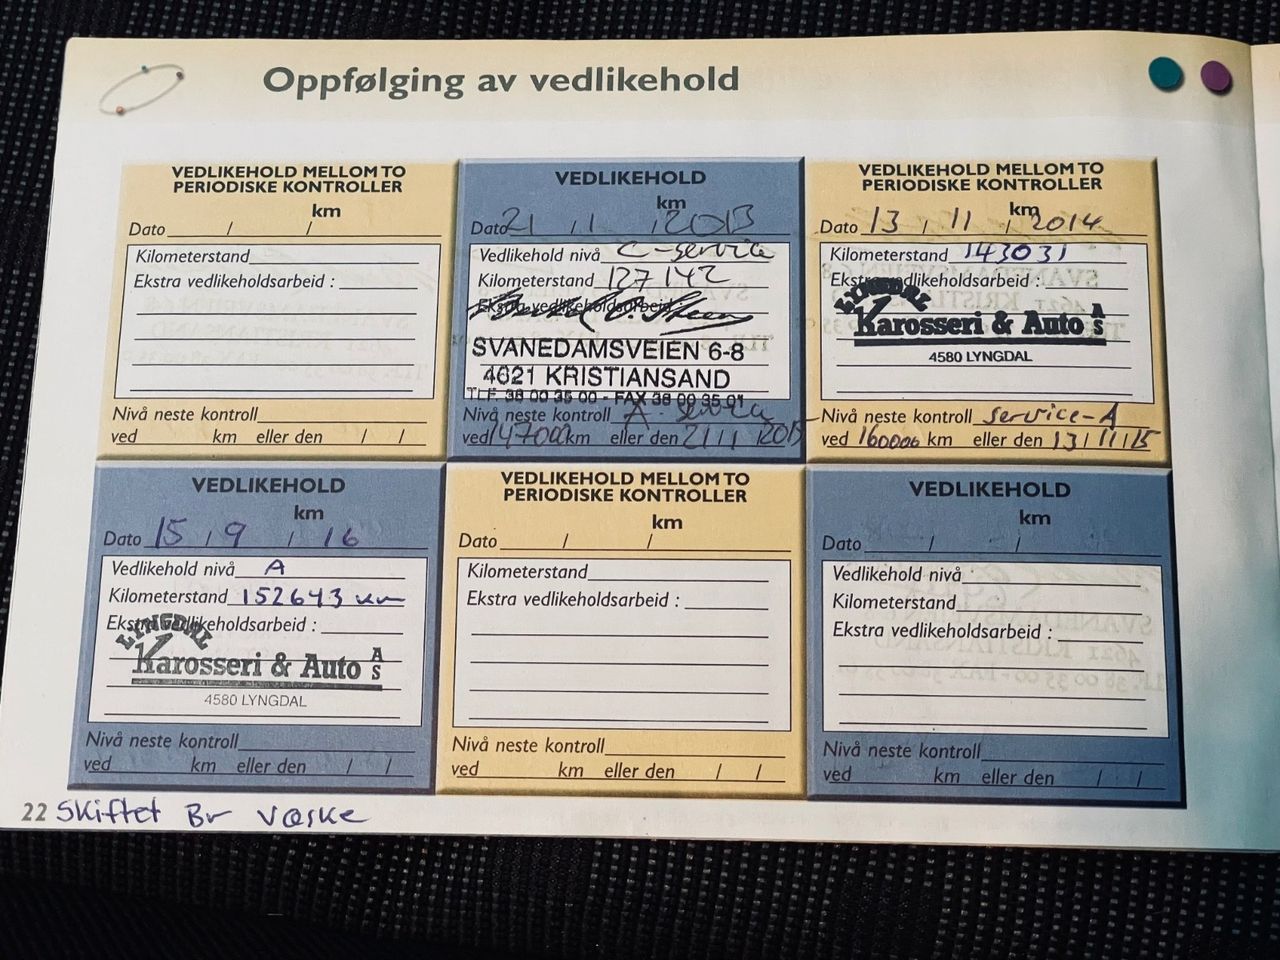 Oppfølging av vedlikehold
VEDLIKEHOLD MELLOM TO
PERIODISKE KONTROLLER
km
Dato / /
Kilometerstand
Ekstra vedlikeholdsarbeid :
Nivå neste kontroll
ved km eller den / /
VEDLIKEHOLD
km
Dato 21 / 1 / 2013
Vedlikehold nivå C-service
Kilometerstand 127142
Ekstra vedlikeholdsarbeid
SVANEDAMSVEIEN 6-8
4621 KRISTIANSAND
TLF. 38 00 35 00 - FAX 38 00 35 01
Nivå neste kontroll A-service
ved 147000 km eller den 21/1 2015
VEDLIKEHOLD MELLOM TO
PERIODISKE KONTROLLER
km
Dato 13 / 11 / 2014
Kilometerstand 143031
Ekstra vedlikeholdsarbeid :
LYNGDAL
Karosseri & Auto AS
4580 LYNGDAL
Nivå neste kontroll service-A
ved 160000 km eller den 13/11/15
VEDLIKEHOLD
km
Dato 15 / 9 / 16
Vedlikehold nivå A
Kilometerstand 152643 km
Ekstra vedlikeholdsarbeid :
LYNGDAL
Karosseri & Auto AS
4580 LYNGDAL
Nivå neste kontroll
ved km eller den / /
VEDLIKEHOLD MELLOM TO
PERIODISKE KONTROLLER
km
Dato / /
Kilometerstand
Ekstra vedlikeholdsarbeid :
Nivå neste kontroll
ved km eller den / /
VEDLIKEHOLD
km
Dato / /
Vedlikehold nivå
Kilometerstand
Ekstra vedlikeholdsarbeid :
Nivå neste kontroll
ved km eller den / /
22 Skiftet Br væske